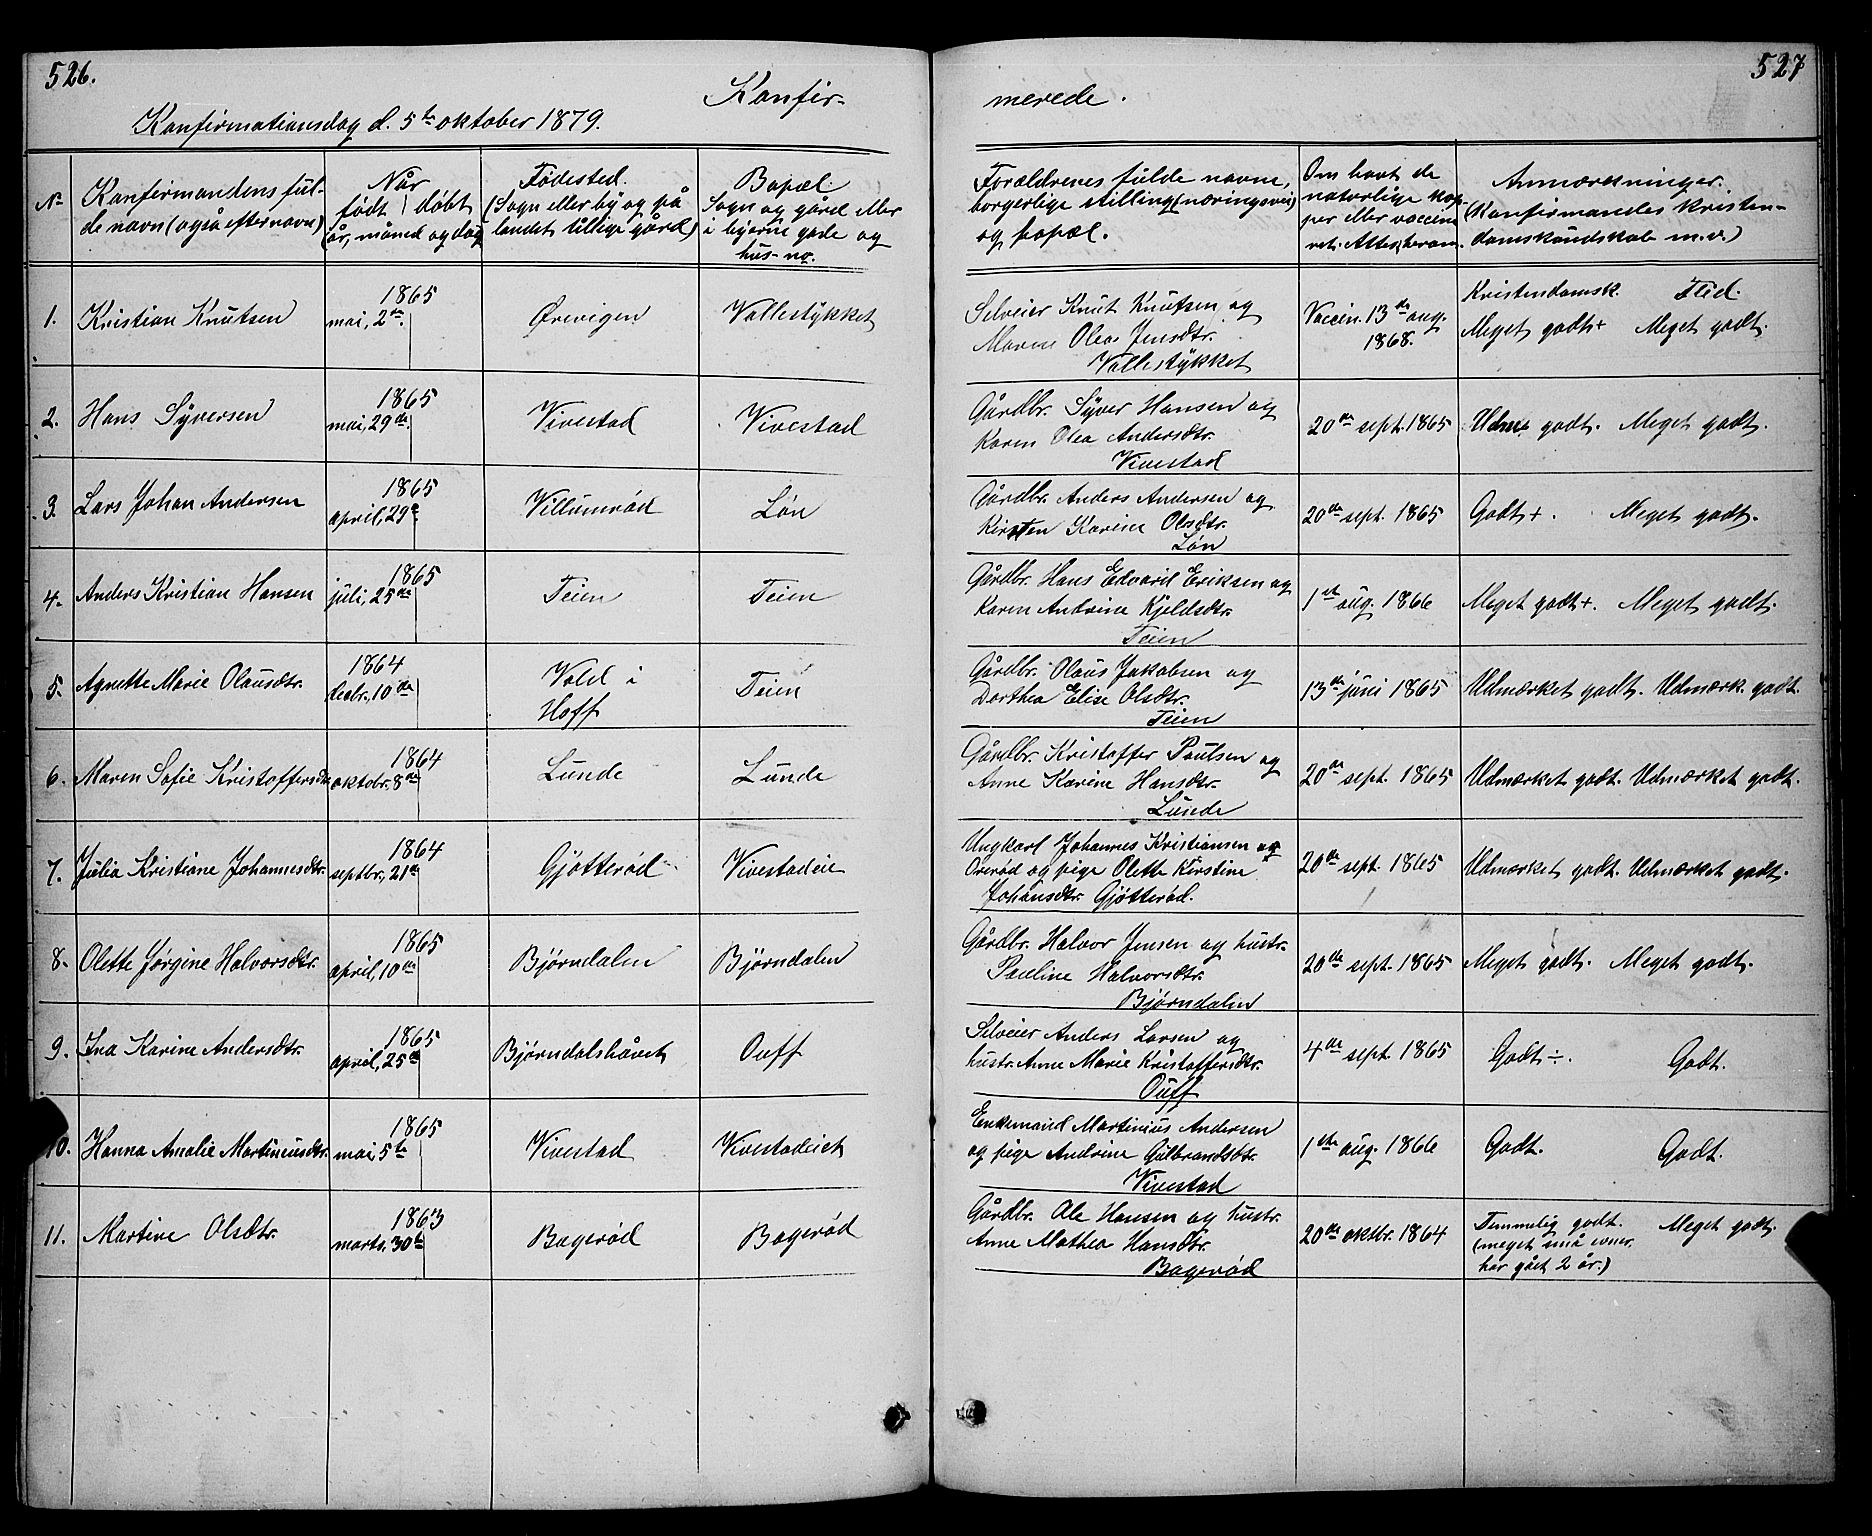 526.
527
Konfir-
merede.
Konfirmationsdag d. 5te oktober 1879.
No
Konfirmandens ful-
de navn (også efternavn)
Når
født | døbt
(år, måned og dag
Fødested.
(Sogn eller by og på
landet tillige gård)
Bopæl.
Sogn og gård eller
i byerne gade og
hus-no.
Forældrenes fulde navne,
borgerlige stilling (næringsvei)
og bopæl.
Om havt de
naturlige kop-
per eller vaccine-
ret. Attest herom.
Anmærkninger.
(Konfirmandes kristen-
domskundskab m.v.)
Kristendomsk. Flid.
1. Kristian Knutsen
1865
mai, 2den
Ørevigen
Vallestykket
Selveier Knut Knutsen og
Maren Olea Jensdtr.
Vallestykket
Vaccin. 13de aug.
1868.
Meget godt+ Meget godt.
2. Hans Syversen
1865
mai, 29de
Vivestad
Vivestad
Gårdbr. Syver Hansen og
Karen Olea Andersdtr.
Vivestad
20de sept. 1865
Udm. godt. Meget godt.
3. Lars Johan Andersen
1865
april, 29e
Villumrød
Løn
Gårdbr. Anders Andersen og
Kirsten Karine Olsdtr.
Løn
20de sept. 1865
Godt+. Meget godt.
4. Anders Kristian Hansen
1865
juli, 25de
Teien
Teien
Gårdbr. Hans Edvard Eriksen og
Karen Andrine Kjeldsdtr.
Teien
1ste aug. 1866
Meget godt+. Meget godt.
5. Agnette Marie Olausdtr.
1864
decbr. 10de
Vold i
Hoff
Teien
Gårdbr. Olaus Jakobsen og
Dorthea Elise Olsdtr.
Teien
13de juni 1865
Udmærket godt. Udmærk. godt.
6. Maren Sofie Kristoffersdtr.
1864
oktobr. 8de
Lunde
Lunde
Gårdbr. Kristoffer Paulsen og
Anne Karine Hansdtr.
Lunde
20de sept. 1865
Udmærket godt. Udmærket godt.
7. Julia Kristiane Johannesdtr.
1864
septbr, 21de
Gjøtterød
Vivestadeie
Ungkarl Johannes Kristiansen og
Orerød og pige Olette Kirstine
Johansdtr. Gjøtterød.
20de sept. 1865
Udmærket godt. Udmærket godt.
8. Olette Jørgine Halvorsdtr.
1865
april, 10de
Bjørndalen
Bjørndalen
Gårdbr. Halvor Jensen og hustr.
Pauline Halvorsdtr.
Bjørndalen
20de sept. 1865
Meget godt. Meget godt.
9. Ina Karine Andersdtr.
1865
april, 25de
Bjørndalshåvet
Ouff
Selveier Anders Larsen og
hustr. Anne Marie Kristoffersdtr.
Ouff
4de sept. 1865
Godt÷. Godt.
10. Hanna Amalie Martiniusdtr.
1865
mai 5te
Vivestad
Vivestadeiet
Enkemand Martinius Andersen
og pige Andrine Gulbrandsdtr.
Vivestad
1ste aug. 1866
Godt. Godt.
11. Martine Olsdtr.
1863
marts, 30te
Bagerød
Bagerød
Gårdbr. Ole Hansen og hustr.
Anne Mathea Hansdtr.
Bagerød
20de oktbr. 1864
Temmelig godt. Meget godt.
(meget små evner,
har gået 2 år.)